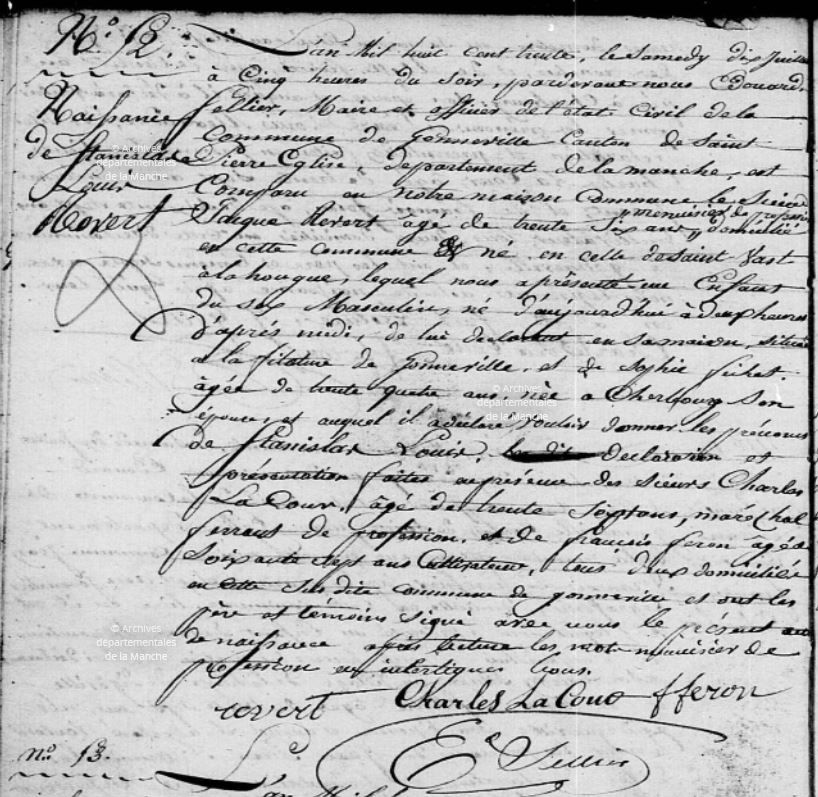 N.º 12.
Naissance
de Stanislas
Louis
Revert
L'an Mil huit cent trente, le Samedy dix Juillet
à Cinq heures du Soir, pardevant nous Edouard
Sellier, Maire et officier de l'état Civil de la
Commune de Gonneville Canton de Saint
Pierre Eglise, departement de la manche, est
Comparu en notre maison Commune le Sieur
Jacque Revert âgé de trente Six ans, menuisier de profession domicilié
en cette commune né en celle de Saint Vast
à la hougue, lequel nous a présenté un Enfant
du sex Masculin, né d'aujourd'hui à deux heures
d'après midi, de lui declarant en Sa maison, située
a la filature de gonneville, et de Sophie
âgée de trente quatre ans née a Cherbourg Son
épouse, et auquel il a déclaré vouloir donner les prénoms
de Stanislas Louis, declaration et
présentation faites en présence des Sieurs Charles
La Cour, âgé de trente Sept ans, maréchal
ferrant de profession, et de francois feron âgé de
Soixante Sept ans Cultivateur, tous deux domiciliés
en cette Susdite commune de gonneville et ont les
père et témoins Signé avec nous le présent acte
de naissance après lecture les mots menuisier de
profession en interlignes bons.
revert Charles La Cour fferon
E Sellier
n.º 13.
L'an Mil
© Archives
départementales
de la Manche
© Archives
départementales
de la Manche
© Archives
départementales
de la Manche